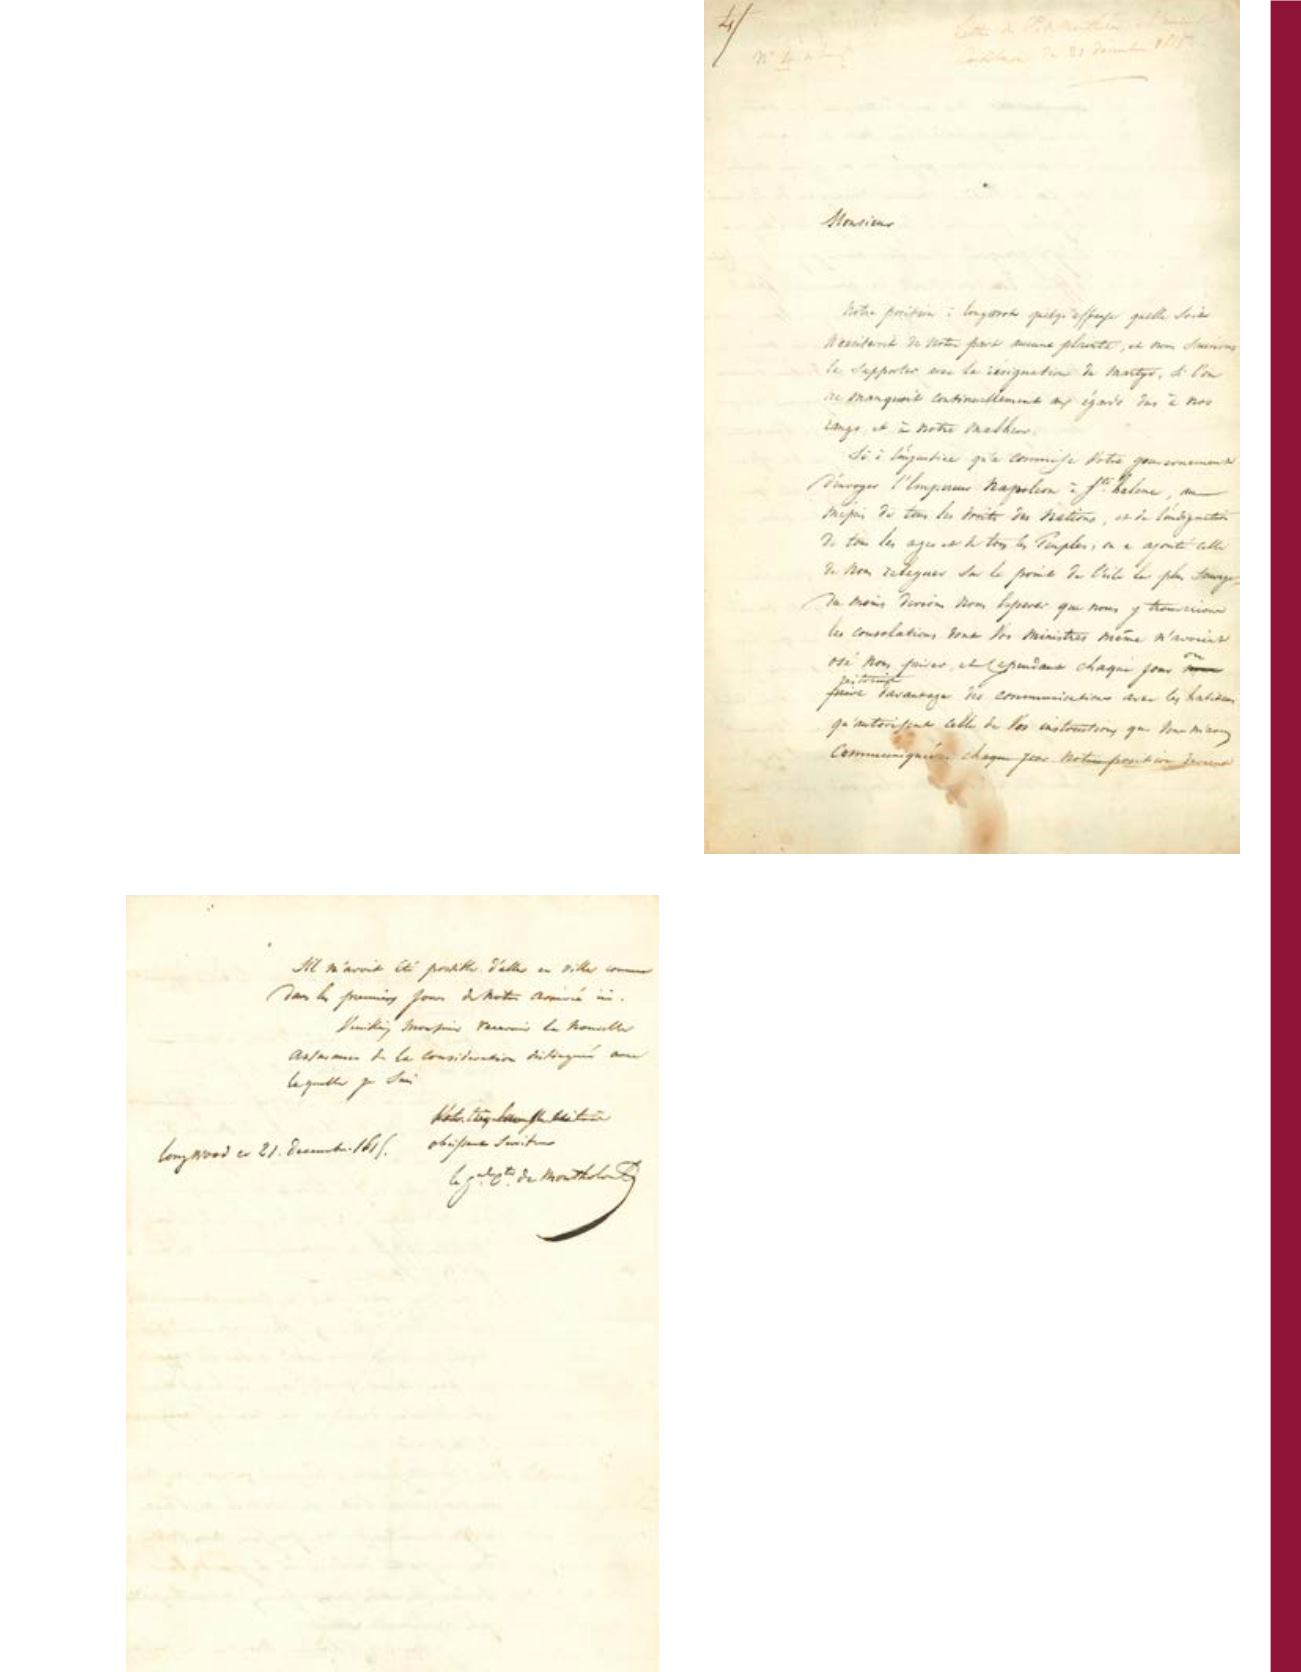 4/
N° 4
Lettre de
du 21 décembre 1815
Monsieur
Notre position à longwood quelqu'affreuse quelle soit
n'exciteroit de notre part aucune plainte, et nous saurions
la supporter avec la résignation du martyr, si l'on
ne manquoit continuellement aux égards dus à nos
rangs et à notre malheur.
Si à l'injustice qu'a commise votre gouvernement
d'envoyer l'Empereur Napoleon à Ste hélene, au
mépris de tous les droits des Nations, et de l'indignation
de tous les ages et de tous les Peuples, on a ajouté celle
de nous releguer sur le point de l'isle le plus sauvage,
du moins devions nous esperer que nous y trouverions
les consolations dont vos ministres même n'avoient
osé nous priver, et cependant chaque jour on
restreint
davantage les communications avec les habitans
qu'autorisent celle de vos instructions que vous m'avez
communiquées chaque jour notre position devient
S'il m'avoit été possible d'aller en ville comme
dans les premiers jours de notre arrivée ici.
Veuillez Monsieur recevoir la nouvelle
assurance de la considération distinguée avec
laquelle je suis
Votre très humble et très
obeissant Serviteur
longwood ce 21. decembre 1815.
le gal cte de Montholon